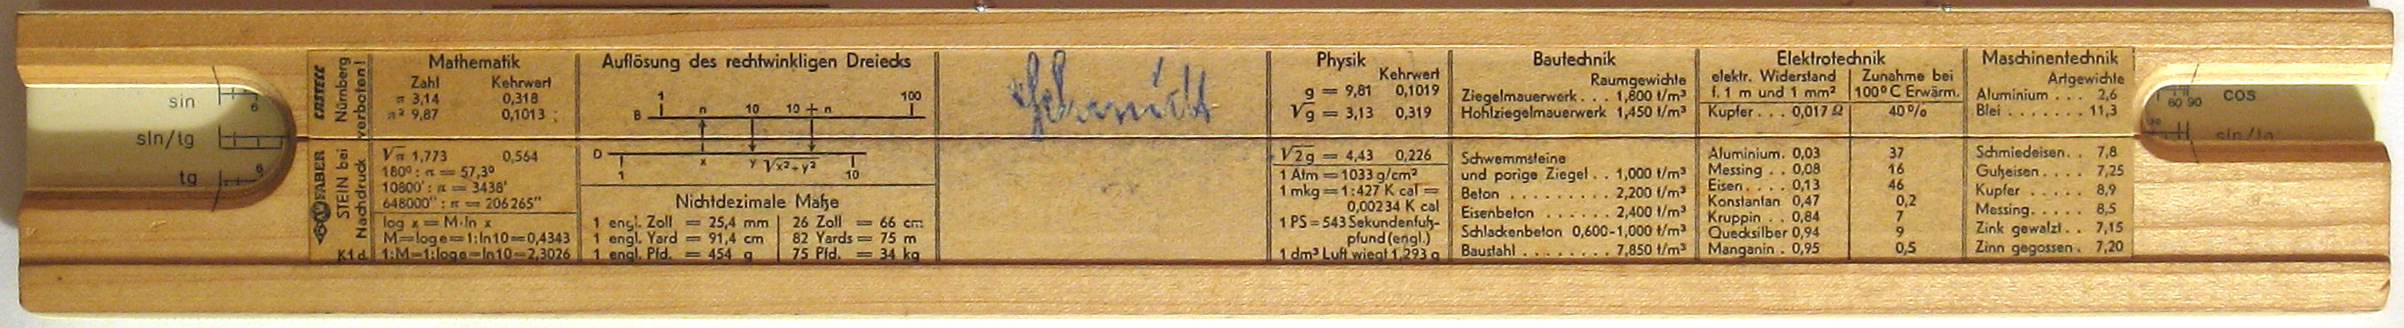 sin
6
sin/tg
tg
6
CASTELL
Nürnberg
verboten!
A.W.FABER
STEIN bei
Nachdruck
K1d.
Mathematik
Zahl Kehrwert
π 3,14 0,318
π² 9,87 0,1013
√π 1,773 0,564
180° : π = 57,3°
10800' : π = 3438'
648000" : π = 206265"
log x = M·ln x
M=loge=1:ln10=0,4343
1:M=1:loge=ln10=2,3026
Auflösung des rechtwinkligen Dreiecks
1 n 10 10 + n 100
B
D
x y √x²+y²
1 10
Nichtdezimale Maße
1 engl. Zoll = 25,4 mm 26 Zoll = 66 cm
1 engl. Yard = 91,4 cm 82 Yards = 75 m
1 engl. Pfd. = 454 g 75 Pfd. = 34 kg
Schmidt
Physik
Kehrwert
g = 9,81 0,1019
√g = 3,13 0,319
√2g = 4,43 0,226
1 Atm = 1033 g/cm²
1 mkg = 1:427 K cal =
0,00234 K cal
1 PS = 543 Sekundenfuß-
pfund (engl.)
1 dm³ Luft wiegt 1,293 g
Bautechnik
Raumgewichte
Ziegelmauerwerk . . . 1,800 t/m³
Hohlziegelmauerwerk 1,450 t/m³
Schwemmsteine
und porige Ziegel . . 1,000 t/m³
Beton . . . . . . . . 2,200 t/m³
Eisenbeton . . . . . . 2,400 t/m³
Schlackenbeton 0,600-1,000 t/m³
Baustahl . . . . . . . . 7,850 t/m³
Elektrotechnik
elektr. Widerstand Zunahme bei
f. 1 m und 1 mm² 100°C Erwärm.
Kupfer . . . 0,017 Ω 40%
Aluminium. 0,03 37
Messing . . 0,08 16
Eisen. . . . 0,13 46
Konstantan 0,47 0,2
Kruppin . . 0,84 7
Quecksilber 0,94 9
Manganin . 0,95 0,5
Maschinentechnik
Artgewichte
Aluminium . . . 2,6
Blei . . . . . . . 11,3
Schmiedeisen. . 7,8
Gußeisen. . . . 7,25
Kupfer . . . . . 8,9
Messing. . . . . 8,5
Zink gewalzt . . 7,15
Zinn gegossen . 7,20
60 90 cos
sin/tg